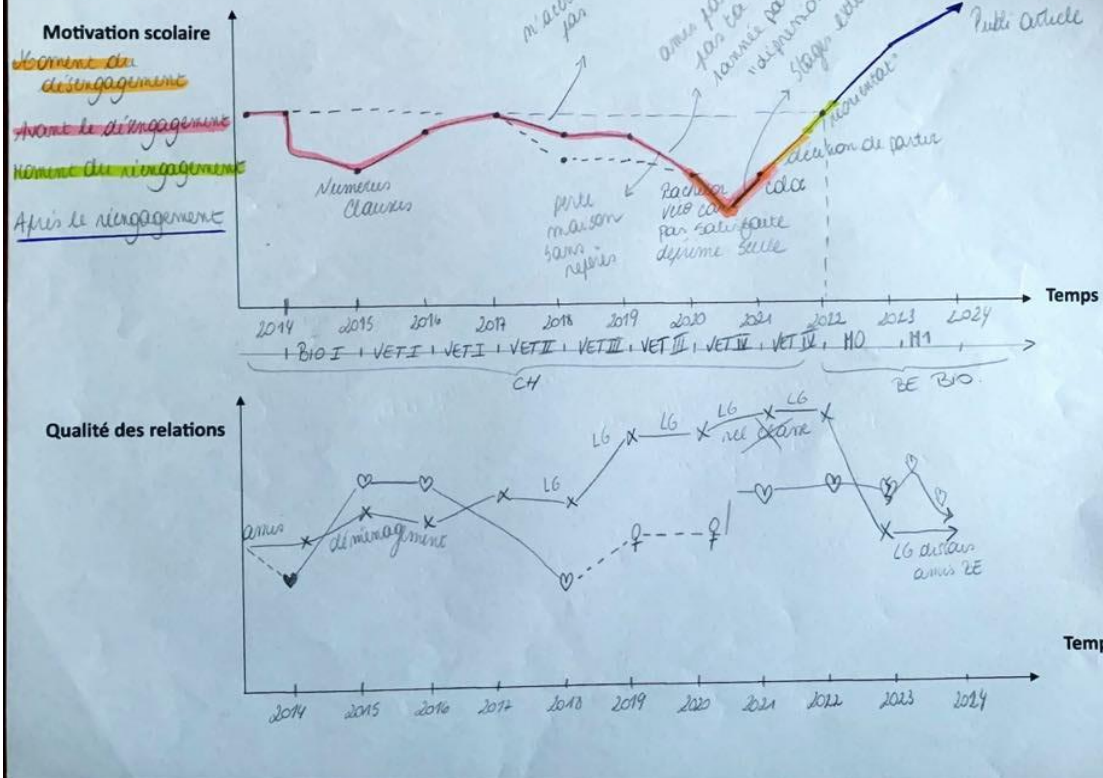 Motivation scolaire
Moment du
désengagement
Avant le désengagement
Moment du réengagement
Après le réengagement
pas
amis
pas
"dépression
Stages
Publi article
décision de partir
Numerus
Clausus
perte
maison
sans
repères
Bachelor
véto
pas satisfaite
déprime seule
coloc
Temps
2014 2015 2016 2017 2018 2019 2020 2021 2022 2023 2024
BIO I VET I VET I VET II VET III VET III VET IV VET IV M0 M1
CH
BE BIO.
Qualité des relations
amis
déménagement
LG
LG
LG
LG
LG
LG
amis BE
Temp
2014 2015 2016 2017 2018 2019 2020 2021 2022 2023 2024